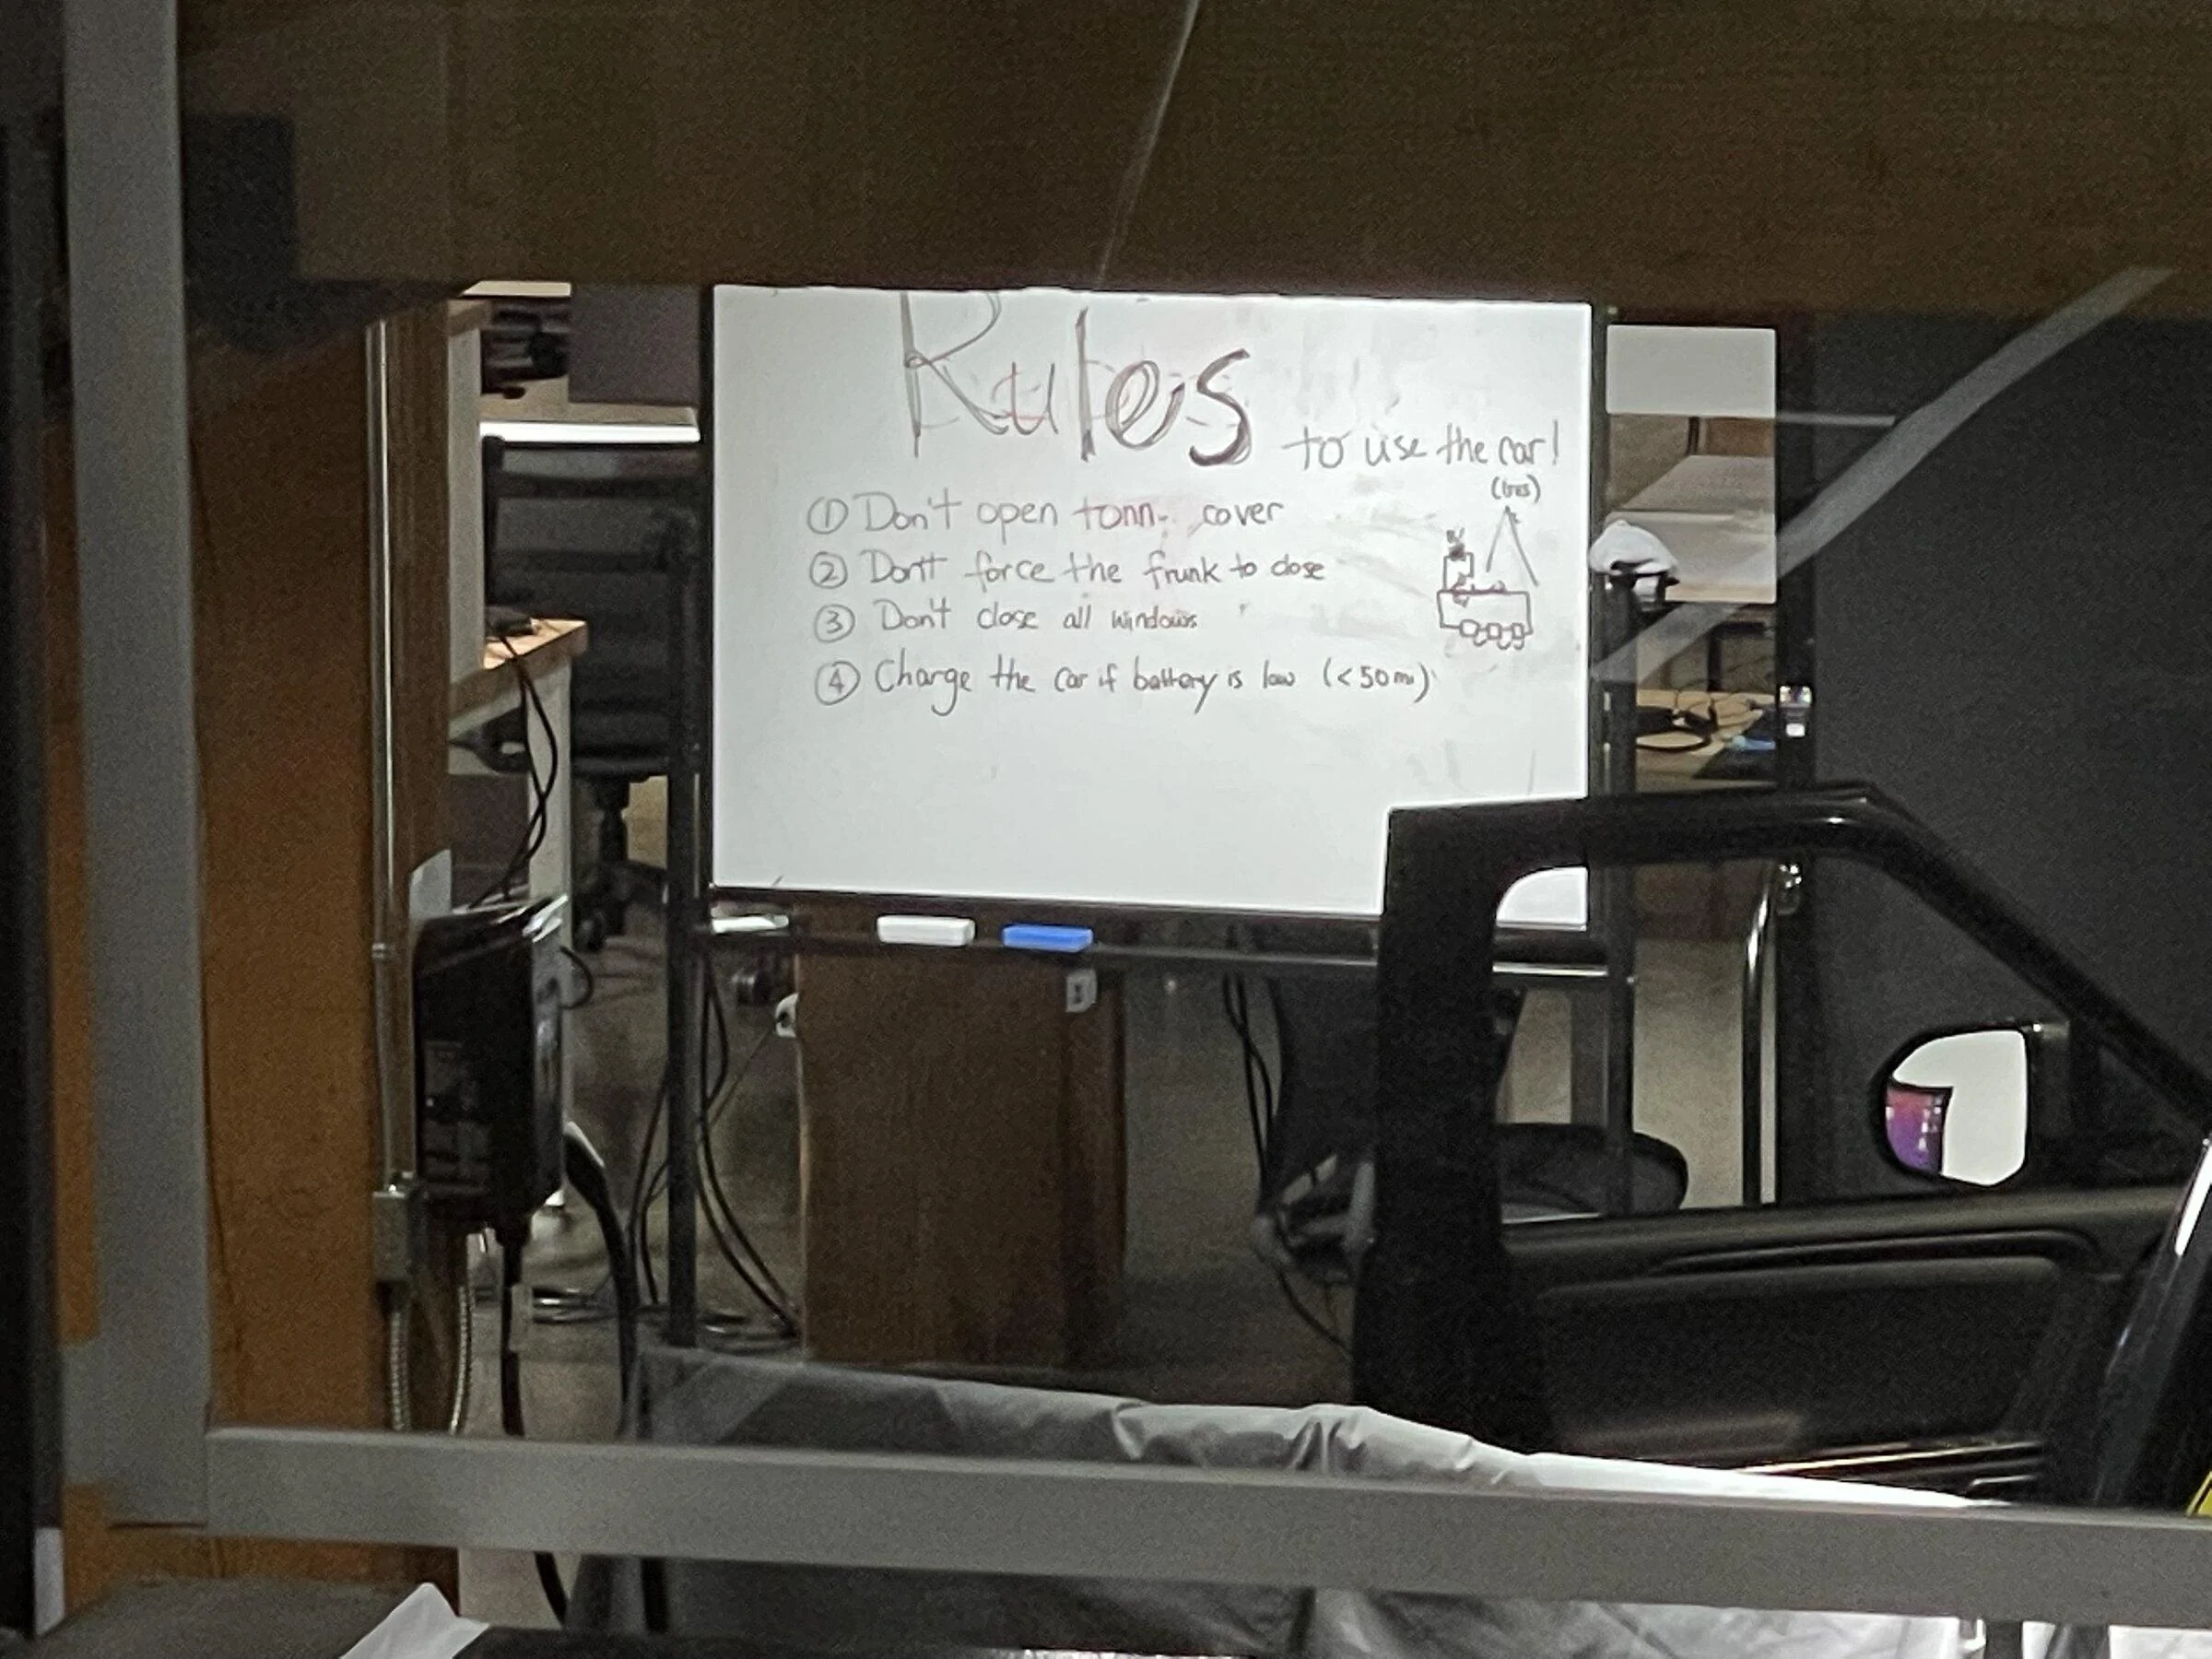 Rules
to use the car!
① Don't open tonn- cover
② Don't force the frunk to close
③ Don't close all windows
④ Charge the car if battery is low (<50mi)